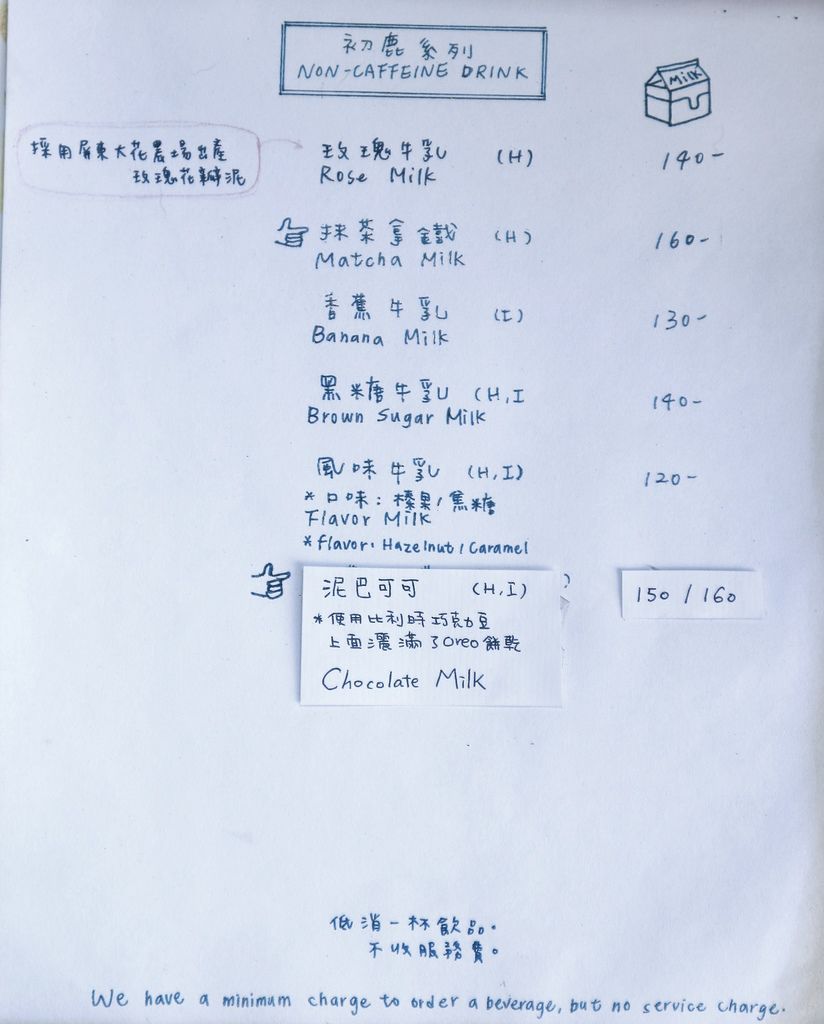 初鹿系列
NON-CAFFEINE DRINK
Milk
採用屏東大花農場出產
玫瑰花瓣泥
玫瑰牛乳 (H) 140-
Rose Milk
抹茶拿鐵 (H) 160-
Matcha Milk
香蕉牛乳 (I) 130-
Banana Milk
黑糖牛乳 (H,I 140-
Brown Sugar Milk
風味牛乳 (H,I) 120-
*口味:榛果/焦糖
Flavor Milk
*flavor: Hazelnut / Caramel
泥巴可可 (H,I) 150 / 160
*使用比利時巧克力豆
上面灑滿了Oreo餅乾
Chocolate Milk
低消一杯飲品。
不收服務費。
We have a minimum charge to order a beverage, but no service charge.